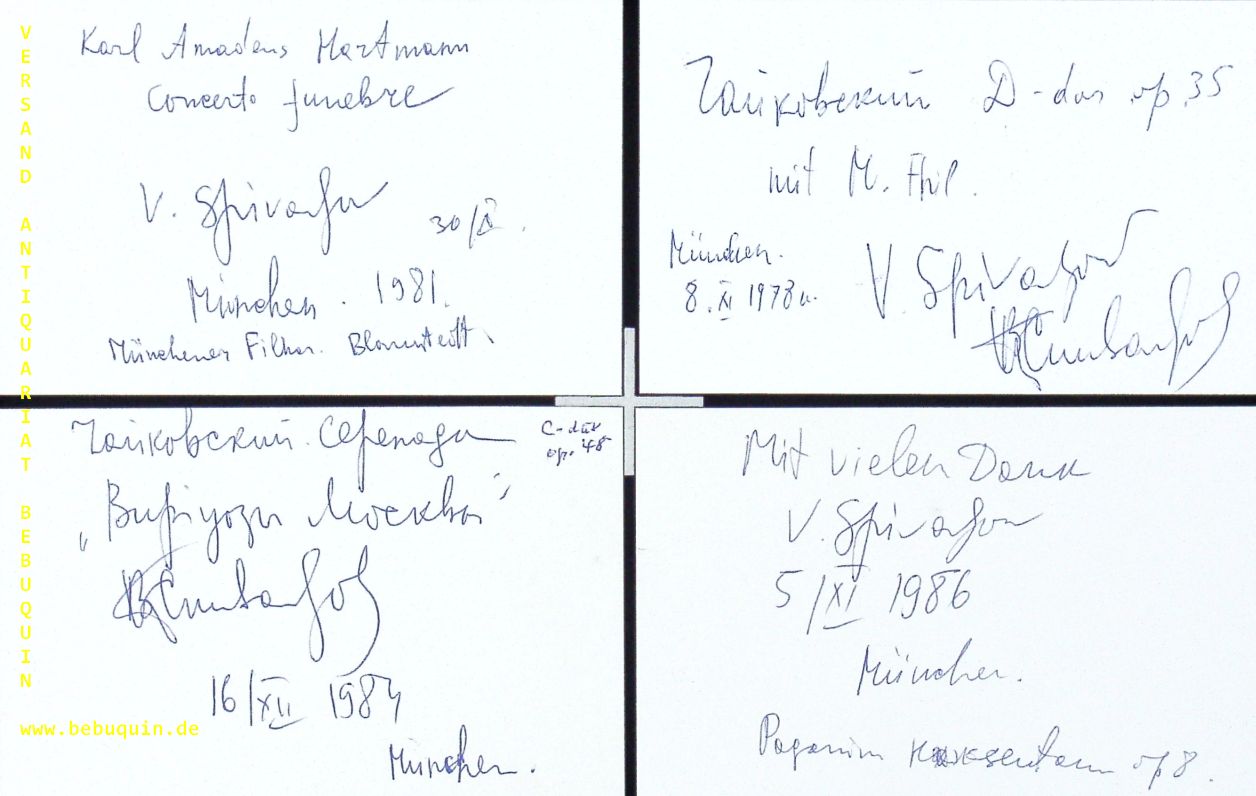 Karl Amadeus Hartmann
Concerto funebre
V. Spivakov
30/X.
München. 1981.
Münchener Filhar. Blomstedt
Чайковский D-dur op. 35
mit M. Phil.
München.
8. XI 1978
V. Spivakov
Чайковский. Серенада
C-dur
op. 48
„Виртуозы Москвы”
16/XII 1984
München.
Mit vielen Dank
V. Spivakov
5/XI 1986
München.
Paganini op 8.
VERSAND ANTIQUARIAT BEBUQUIN
www.bebuquin.de